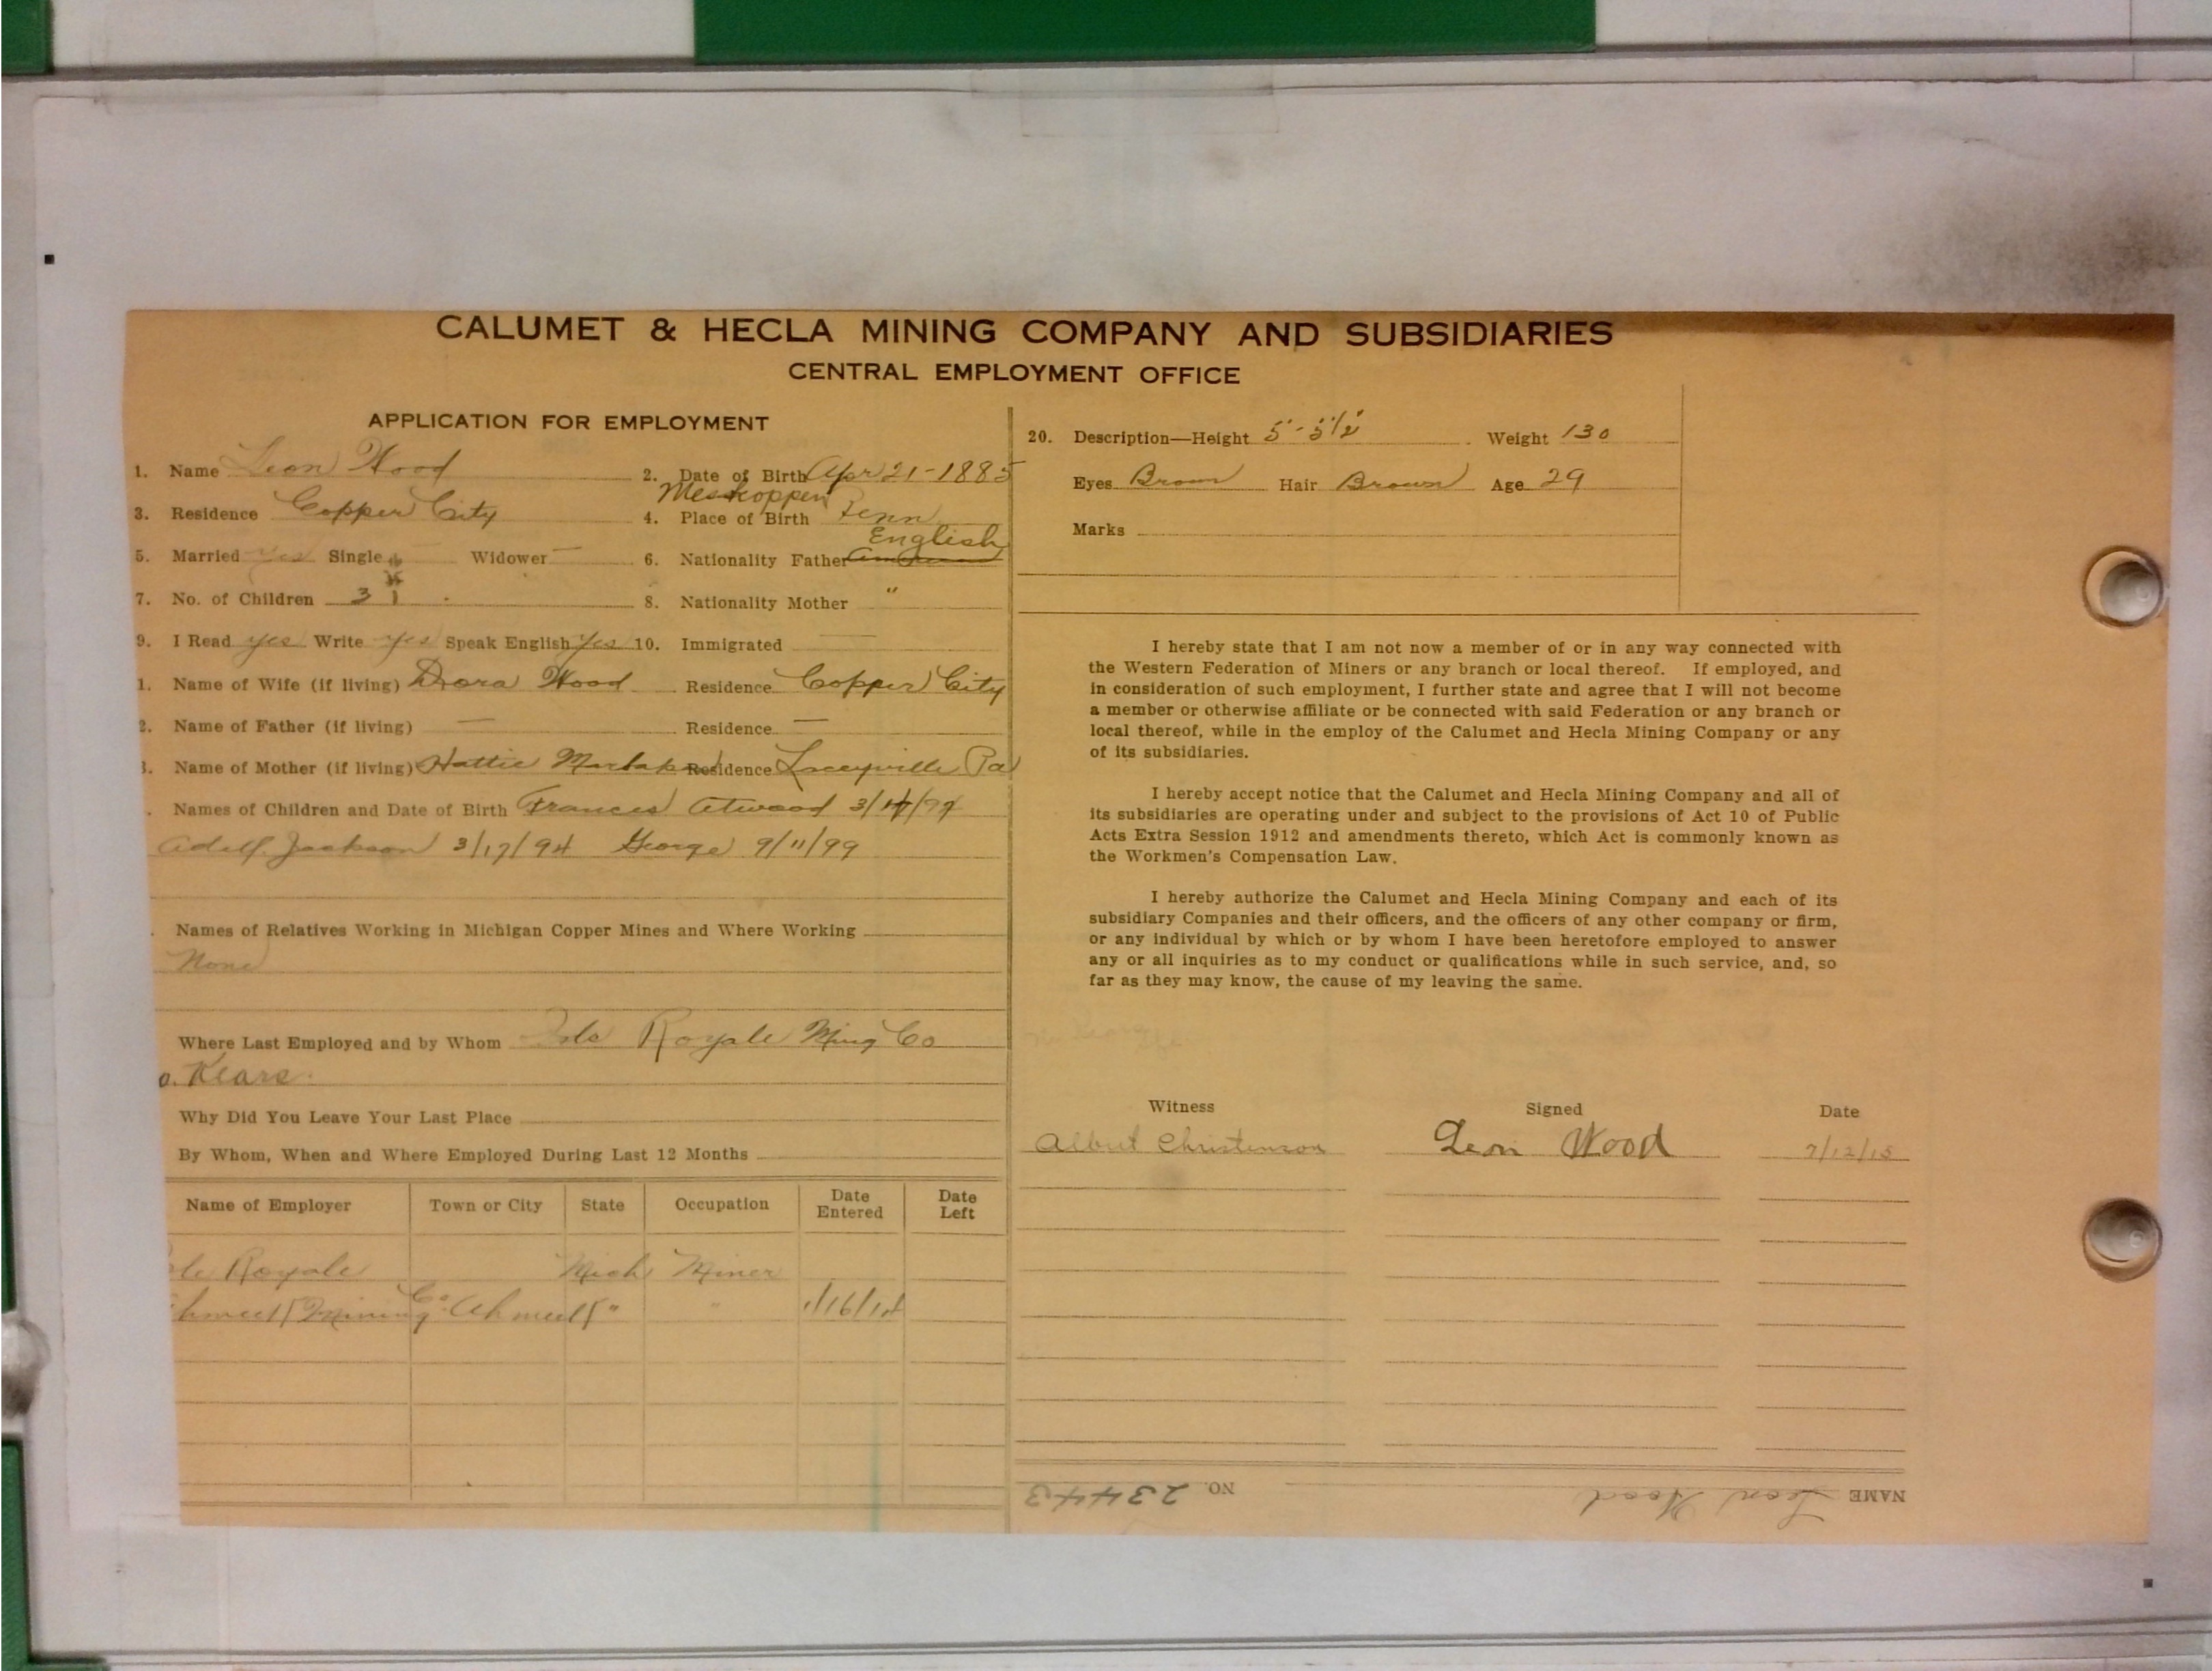 CALUMET & HECLA MINING COMPANY AND SUBSIDIARIES
CENTRAL EMPLOYMENT OFFICE
APPLICATION FOR EMPLOYMENT
1. Name Leon Wood 2. Date of Birth Apr 21-1885
3. Residence Copper City 4. Place of Birth Meshoppen Penn
5. Married yes Single — Widower — 6. Nationality Father English
7. No. of Children 3 8. Nationality Mother "
9. I Read yes Write yes Speak English yes 10. Immigrated —
1. Name of Wife (if living) Dora Wood Residence Copper City
2. Name of Father (if living) — Residence —
3. Name of Mother (if living) Hattie Residence Laceyville Pa
. Names of Children and Date of Birth Frances Atwood
Jackson 3/17/94 George 9/11/99
. Names of Relatives Working in Michigan Copper Mines and Where Working
None
Where Last Employed and by Whom Isle Royale Ming Co
o. Klars.
Why Did You Leave Your Last Place
By Whom, When and Where Employed During Last 12 Months
Name of Employer Town or City State Occupation Date Entered Date Left
le Royale Mich Miner
hmeek Mining Co. Ahmeek " " 1/16/14
20. Description—Height 5'-5 1/2" Weight 130
Eyes Brown Hair Brown Age 29
Marks
I hereby state that I am not now a member of or in any way connected with
the Western Federation of Miners or any branch or local thereof. If employed, and
in consideration of such employment, I further state and agree that I will not become
a member or otherwise affiliate or be connected with said Federation or any branch or
local thereof, while in the employ of the Calumet and Hecla Mining Company or any
of its subsidiaries.
I hereby accept notice that the Calumet and Hecla Mining Company and all of
its subsidiaries are operating under and subject to the provisions of Act 10 of Public
Acts Extra Session 1912 and amendments thereto, which Act is commonly known as
the Workmen's Compensation Law.
I hereby authorize the Calumet and Hecla Mining Company and each of its
subsidiary Companies and their officers, and the officers of any other company or firm,
or any individual by which or by whom I have been heretofore employed to answer
any or all inquiries as to my conduct or qualifications while in such service, and, so
far as they may know, the cause of my leaving the same.
Witness Signed Date
Albert Christenson Leon Wood 7/12/15
NAME Leon Wood NO. 23443